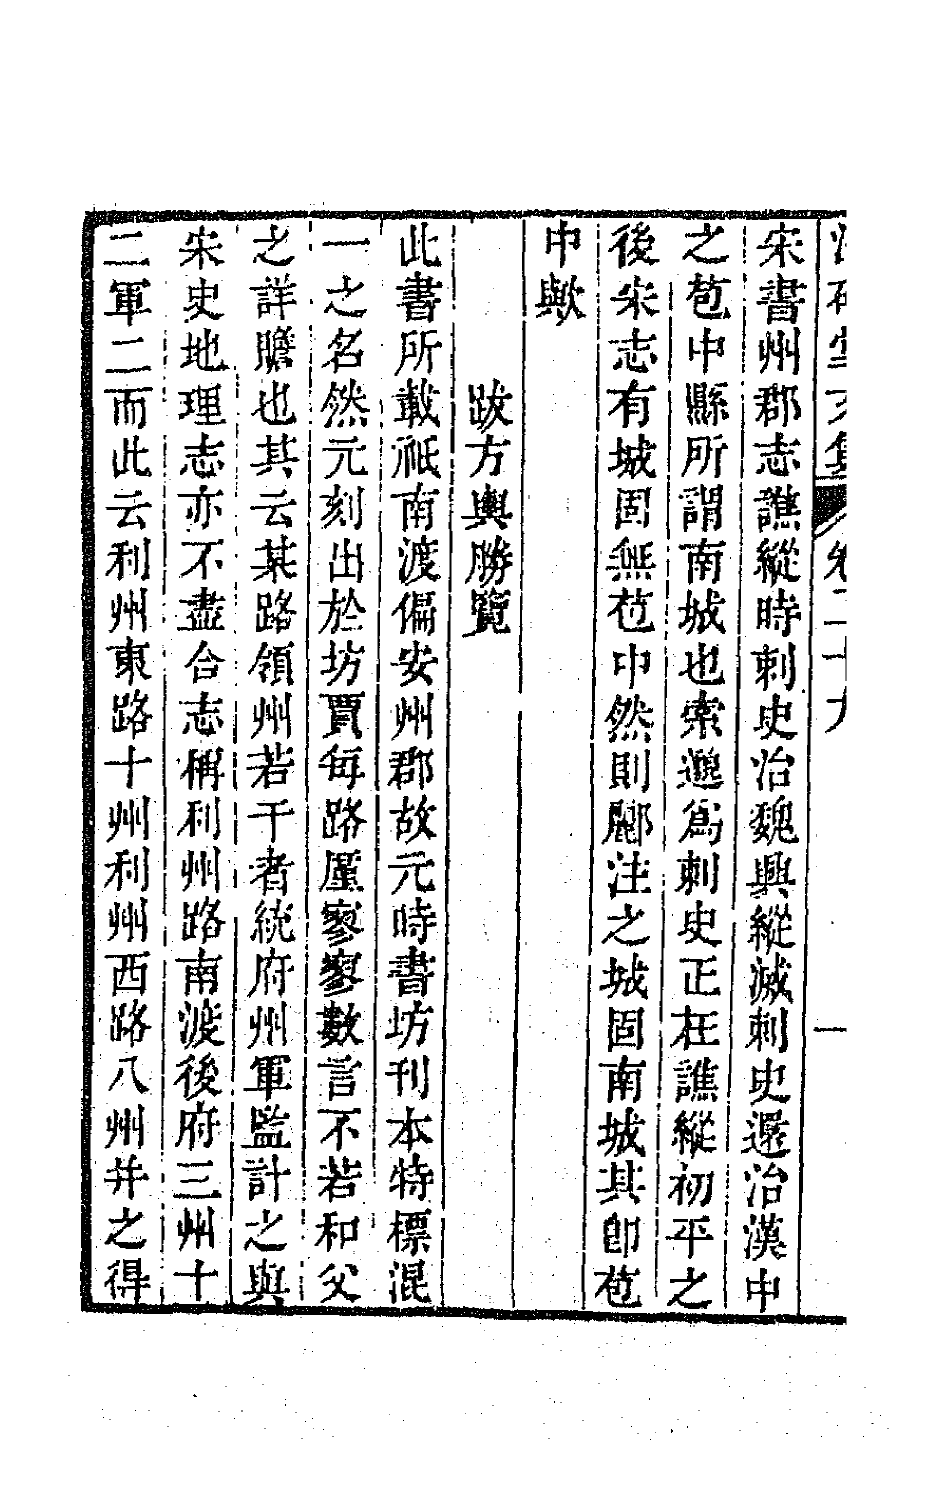 宋書州郡志譙縱時刺史治魏興縱滅刺史還治漢中
之苞中縣所謂南城也索邈爲刺史正在譙縱初平之
後宋志有城固無苞中然則酈注之城固南城其卽苞
中歟
跋方輿勝覽
此書所載祇南渡偏安州郡故元時書坊刊本特標混
一之名然元刻出於坊賈每路厪寥寥數言不若和父
之詳贍也其云某路領州若干者統府州軍監計之與
宋史地理志亦不盡合志稱利州路南渡後府三州十
二軍二而此云利州東路十州利州西路八州并之得